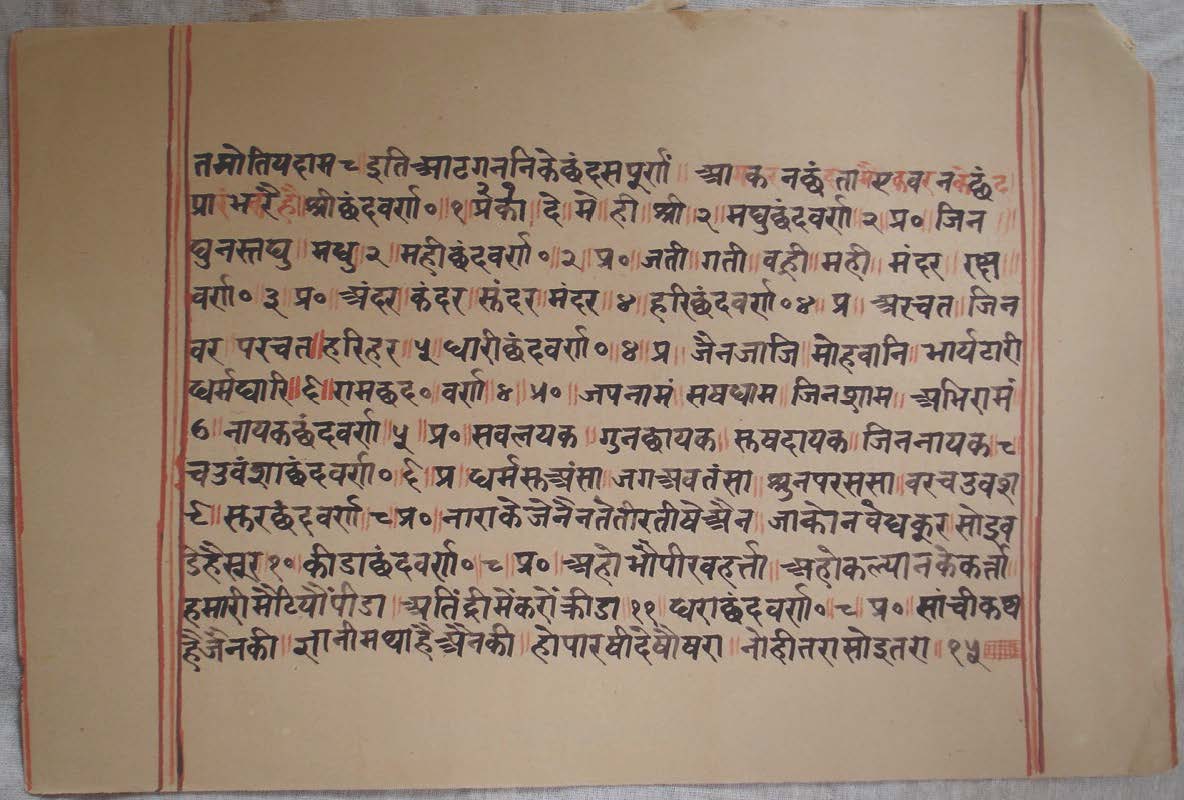 तमोतियदाम ८ इति आठगननिके छंदसपूर्णं ॥ आ क नछं ता एकवरनकछंद
प्रा भ है श्री छंदवर्ण॰ १ प्रे॰ को दे मे ही श्री २ मघुछंदवर्ण २ प्र॰ जिन
घुनस्तघु मधु २ महीछंदवर्ण॰ २ प्र॰ जती गती वही मही मंदर
वर्ण॰ ३ प्र॰ अंदर कंदर स्तंदर मंदर ४ हरिछंदवर्ण॰ ४ प्र अरचत जिन
वर परचत हरिहर ५ धारीछंदवर्ण॰ ४ प्र जैनजाजि मोहवानि भार्यटारी
धर्मधारि ६ रामछद॰ वर्ण ४ प्र॰ जपनामं सषधाम जिनशाम अभिरामं
७ नायकछंदवर्ण ५ प्र॰ सवलयक गुनछायक स्तषदायक जिननायक ८
चउवंशाछंदवर्ण॰ ६ प्र धर्मस्तअंसा जगअवतंसा मुनपरससा वरचउवश
९ स्तरछंदवर्ण ८ प्र॰ नाराके जेनैनतेतीरतीषेअैन जाकोनवेधकुर सोइव
डेहैसूर १० कीडाछंदवर्ण॰ ८ प्र॰ अहो भौपीरवहर्त्ता अहोकल्यानकेकर्त्ता
हमारी मैटियौंपीडा अतिंद्रीमेंकरोंक्रीडा ११ धराछंदवर्ण॰ ८ प्र॰ सांचीकथ
हैजैनकी ज्ञानीमथाहैअैनकी होपारषीदेषौषरा नोहीतरासोइतरा १५